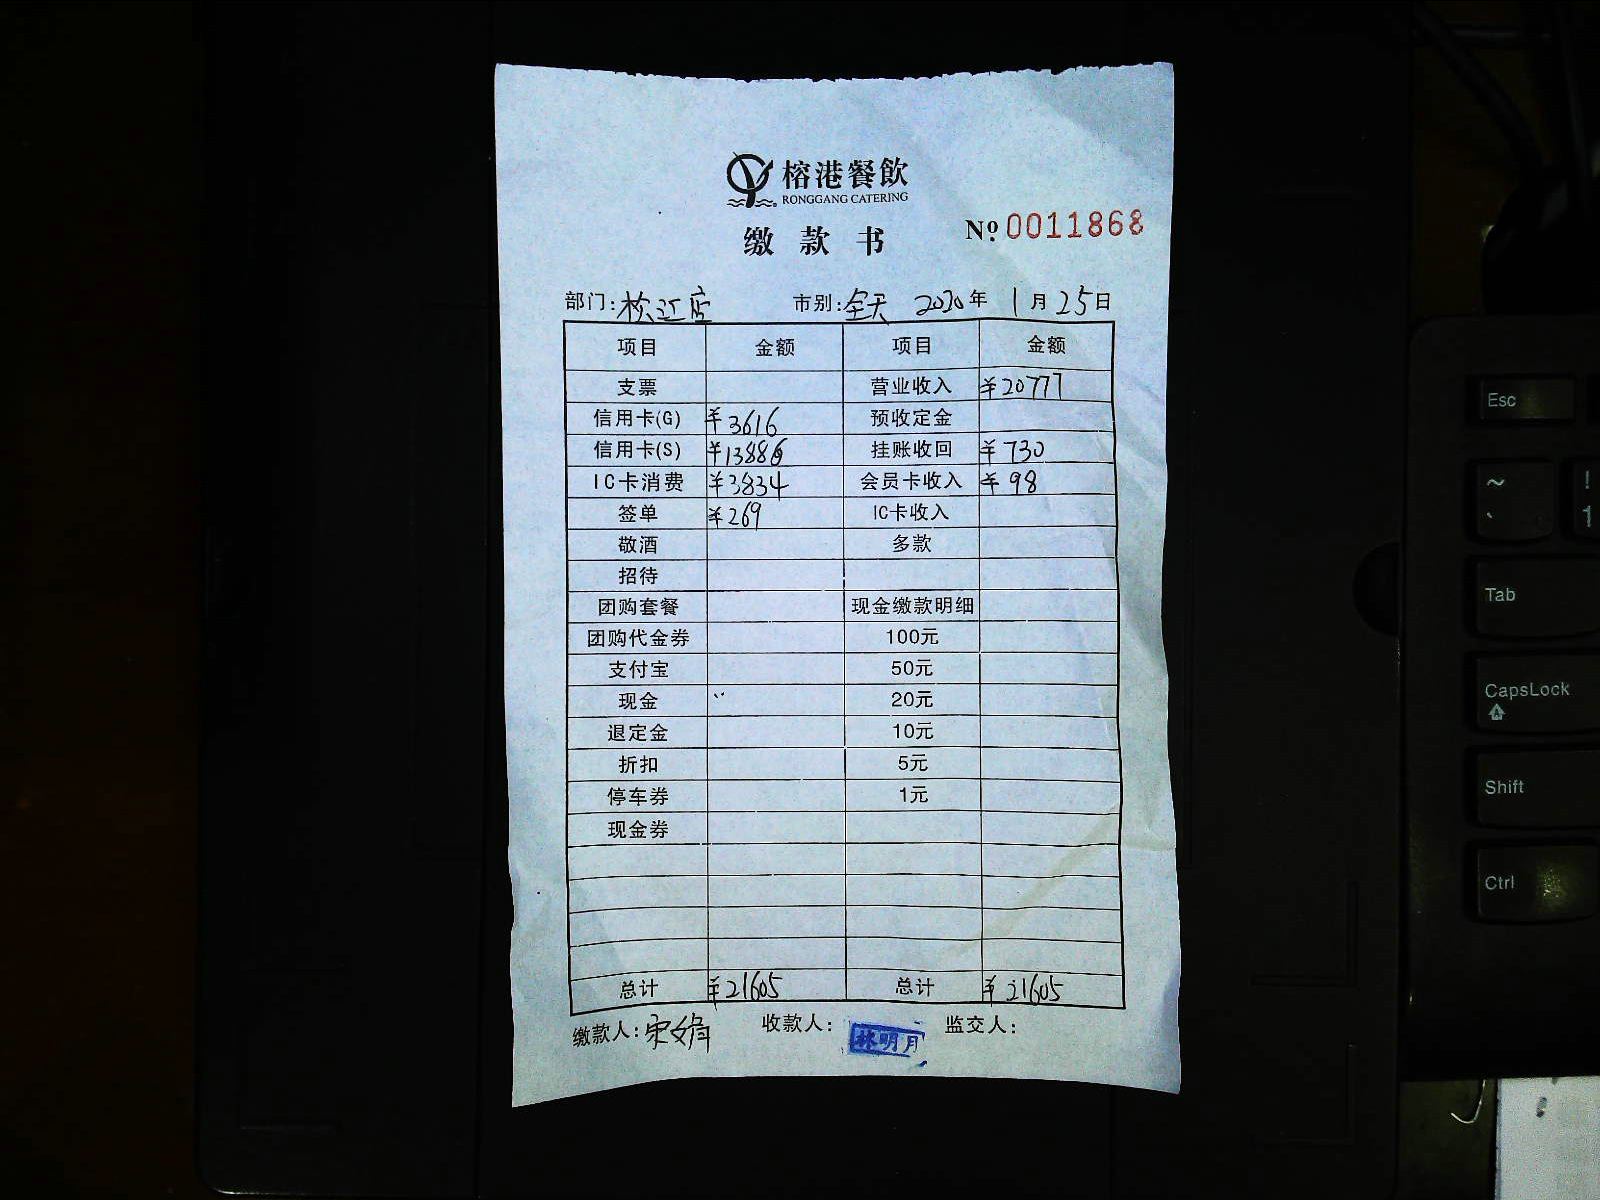 榕港餐飲
RONGGANG CATERING
缴款书 Nº 0011868
部门: 松江店 市别: 全天 2020年 1月25日
项目 金额 项目 金额
支票 营业收入 ¥20777
信用卡(G) ¥3616 预收定金
信用卡(S) ¥13886 挂账收回 ¥730
IC卡消费 ¥3834 会员卡收入 ¥98
签单 ¥269 IC卡收入
敬酒 多款
招待
团购套餐 现金缴款明细
团购代金券 100元
支付宝 50元
现金 20元
退定金 10元
折扣 5元
停车券 1元
现金券
总计 ¥21605 总计 ¥21605
缴款人: 收款人: 林明月 监交人:
Esc
~ !
` 1
Tab
CapsLock
Shift
Ctrl